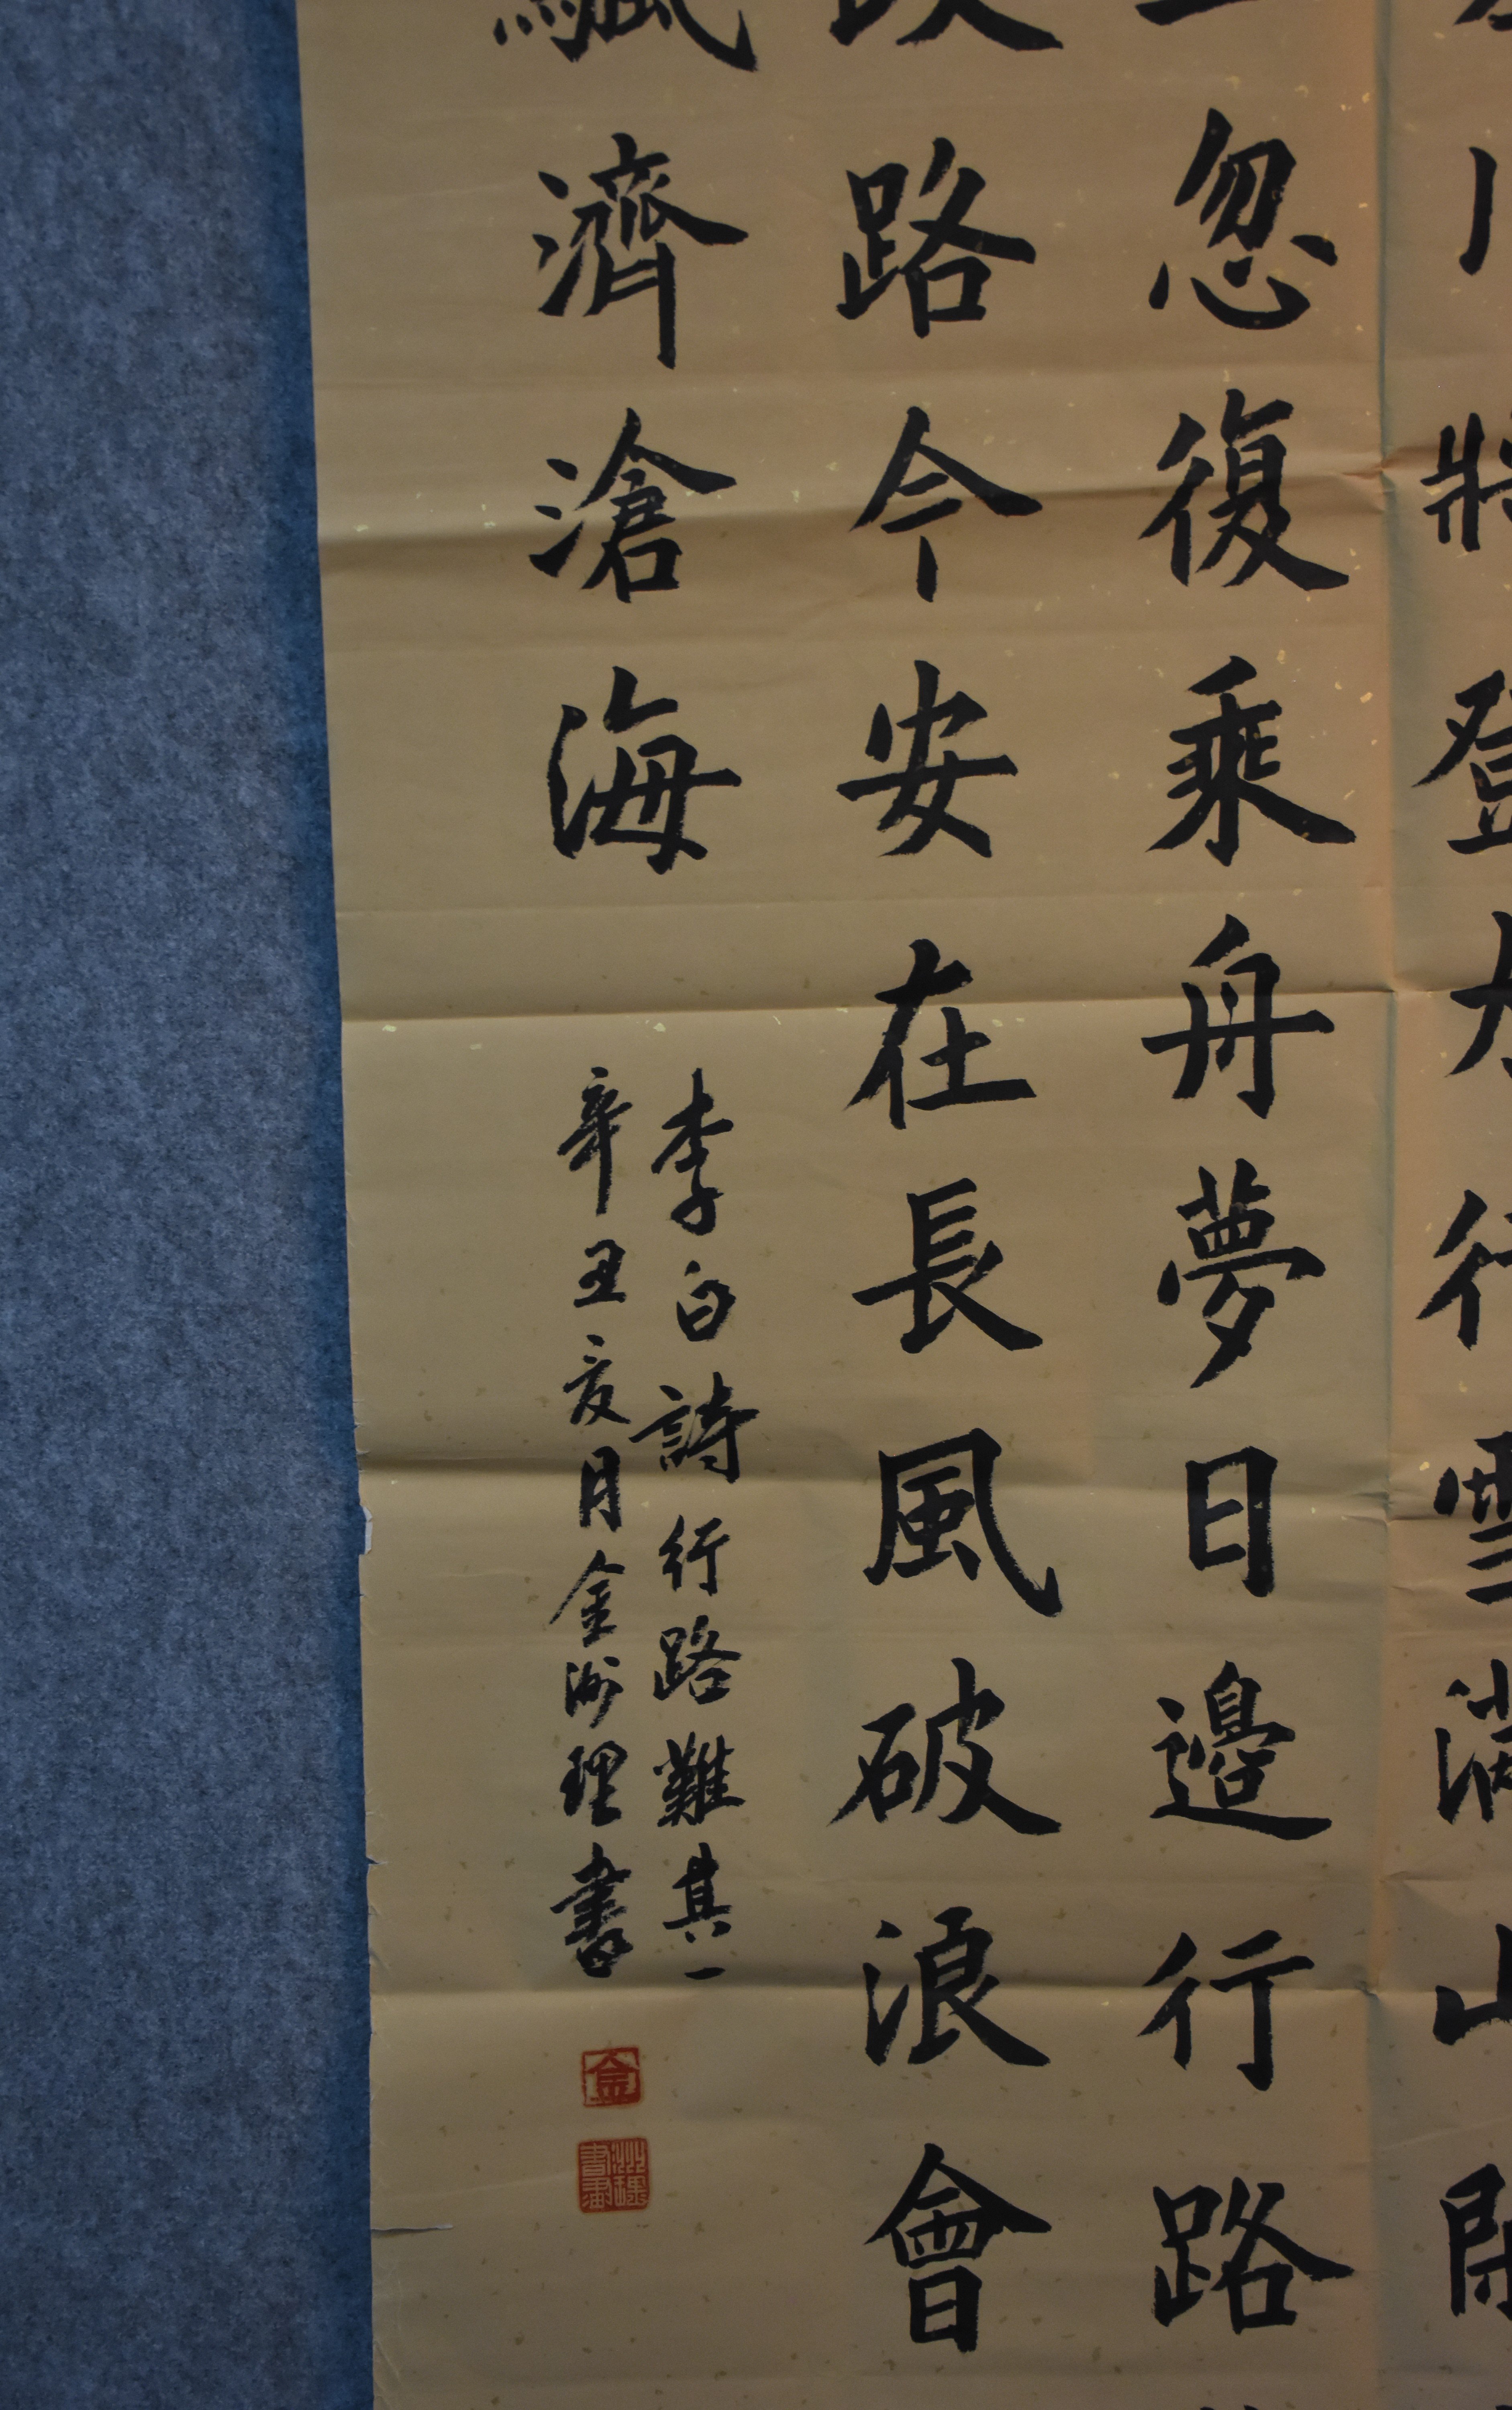 川將登太行雪滿山
忽復乘舟夢日邊行路
路今安在長風破浪會
濟滄海
李白詩行路難其一
辛丑亥月金洲理書
金
洲理書畫